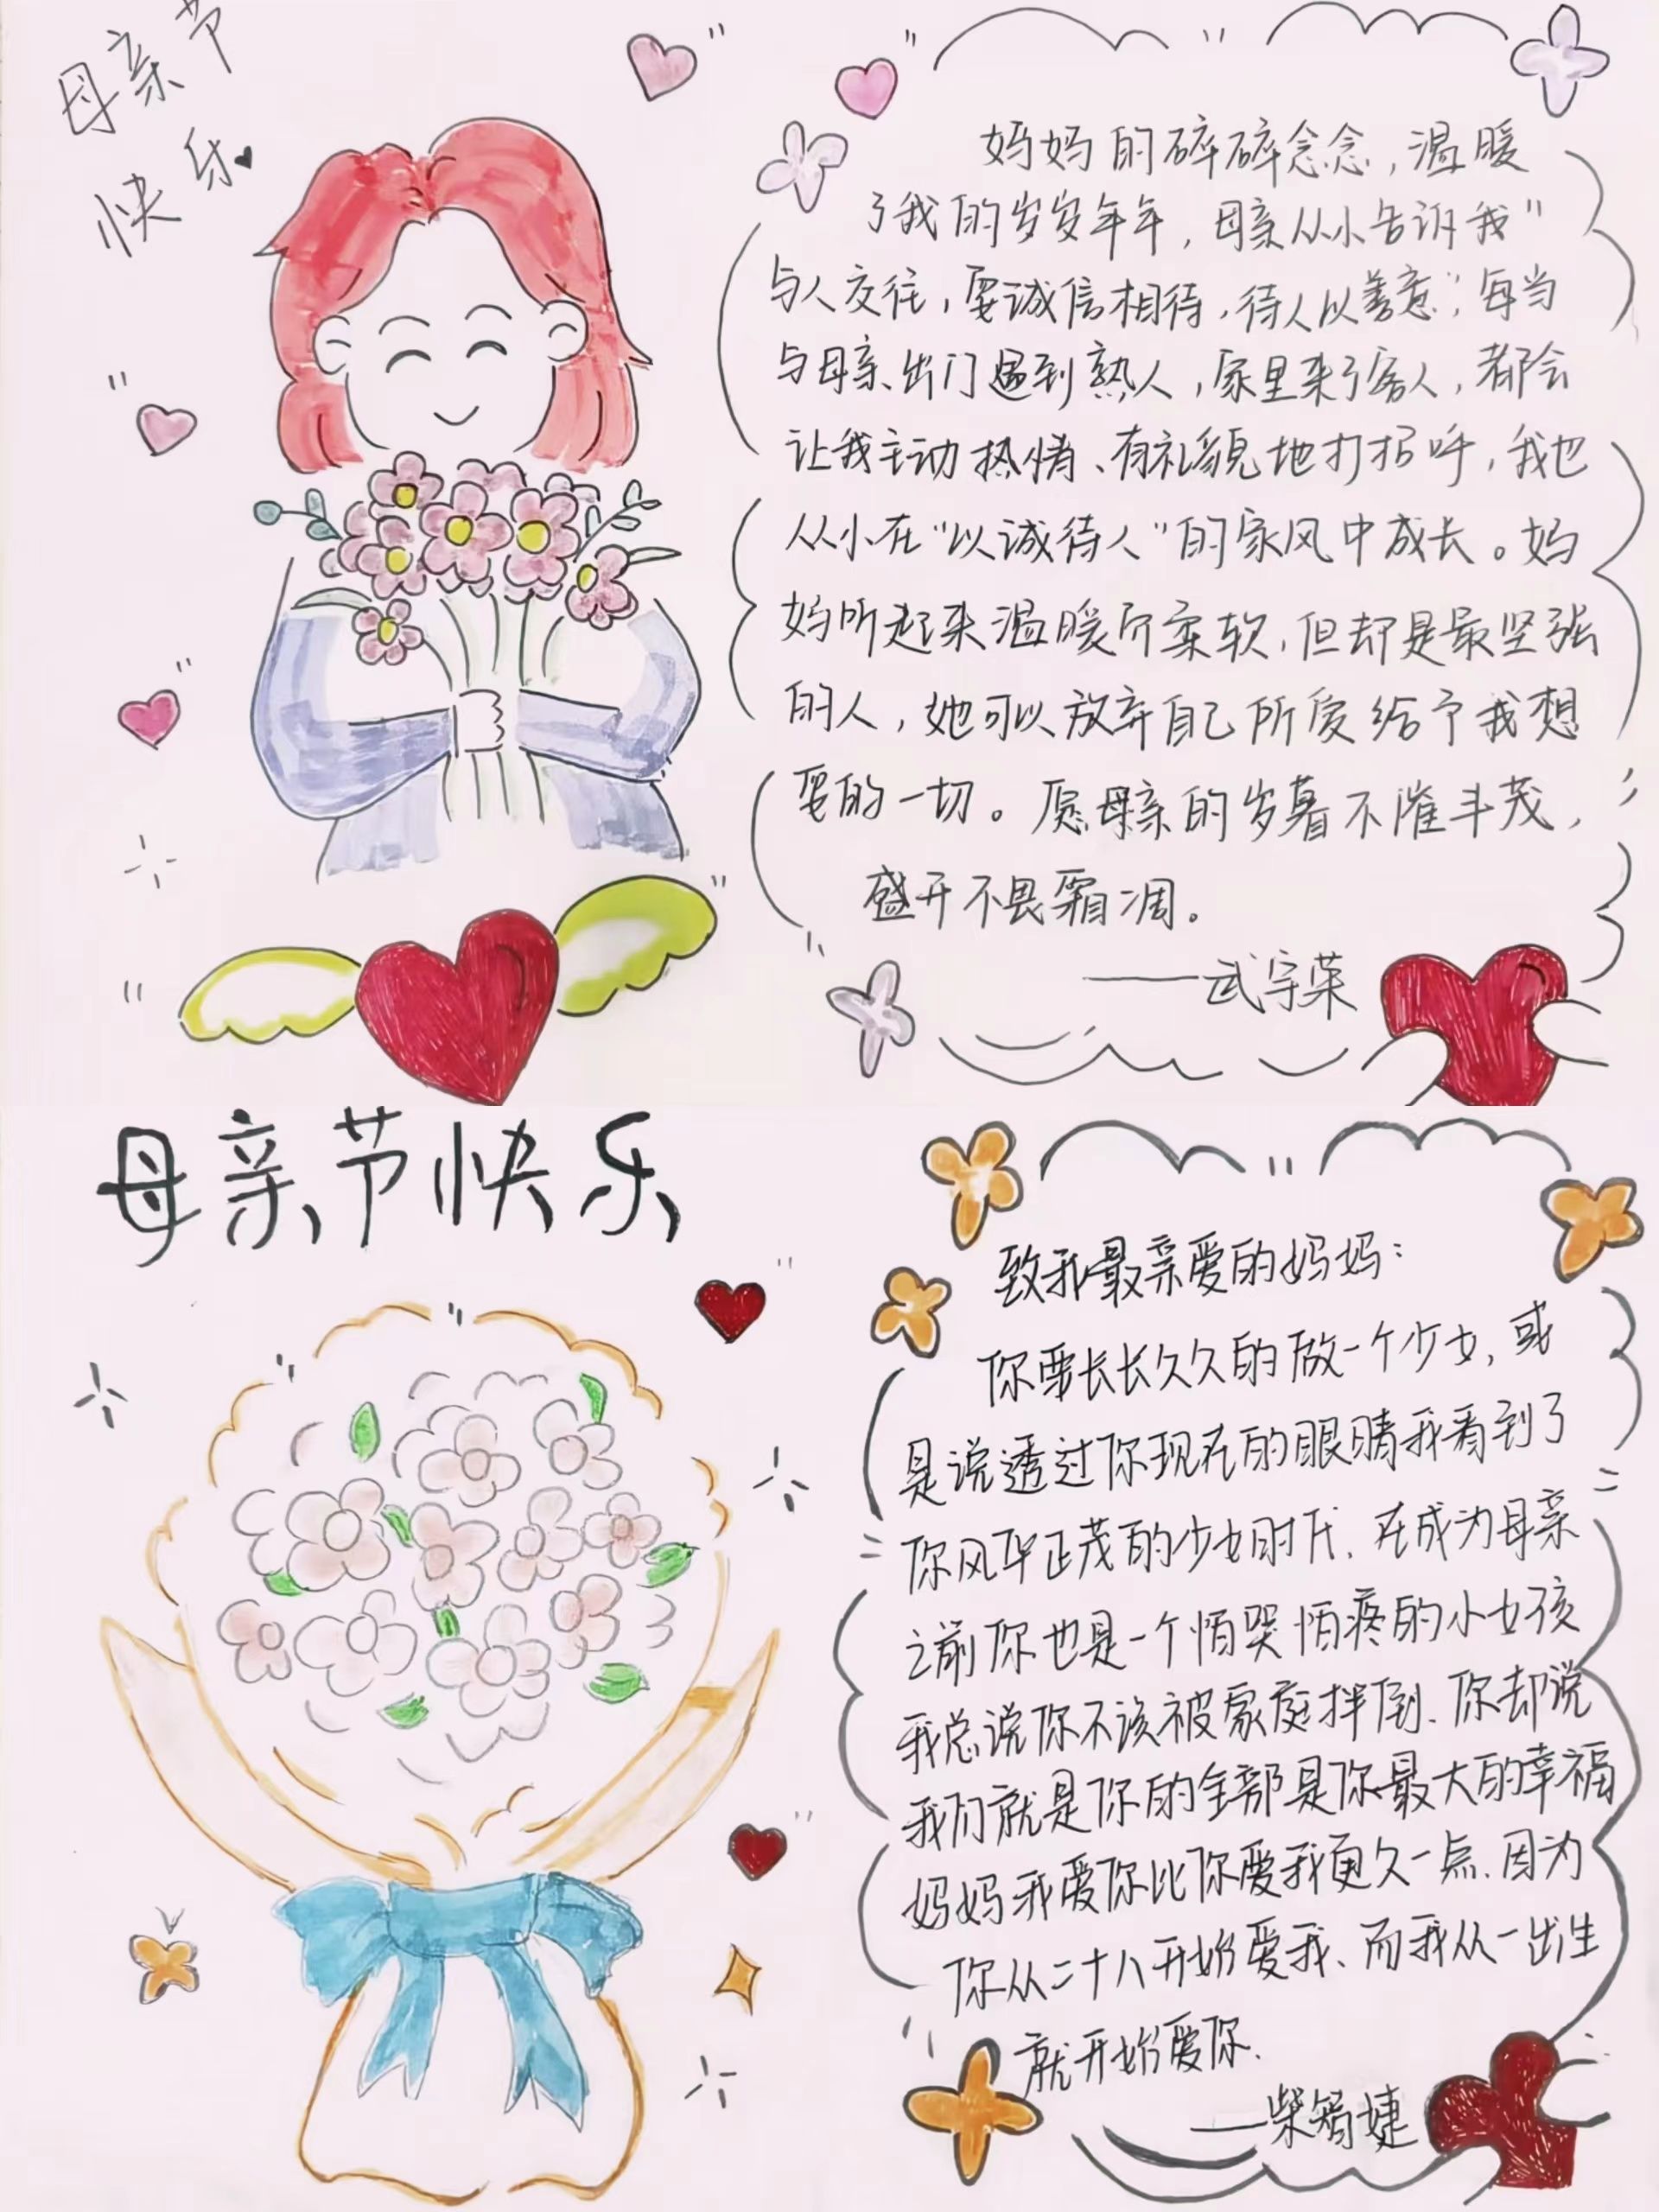 母亲节
快乐
妈妈的碎碎念念，温暖
了我的岁岁年年，母亲从小告诉我"
与人交往，要诚信相待，待人以善意"；每当
与母亲出门遇到熟人，家里来了客人，都会
让我主动热情、有礼貌地打招呼，我也
从小在"以诚待人"的家风中成长。妈
妈听起来温暖而柔软，但却是最坚强
的人，她可以放弃自己所爱给予我想
要的一切。愿母亲的岁暮不催丰茂，
盛开不畏霜凋。
——武宗荣
母亲节快乐
致我最亲爱的妈妈：
你要长长久久的做一个少女，或
是说透过你现在的眼睛我看到了
你风华正茂的少女时代、在成为母亲
之前你也是一个怕哭怕疼的小女孩
我总说你不该被家庭拌倒、你却说
我们就是你的全部是你最大的幸福
妈妈我爱你比你爱我更久一点、因为
你从二十八开始爱我、而我从一出生
就开始爱你.
——柴箐婕